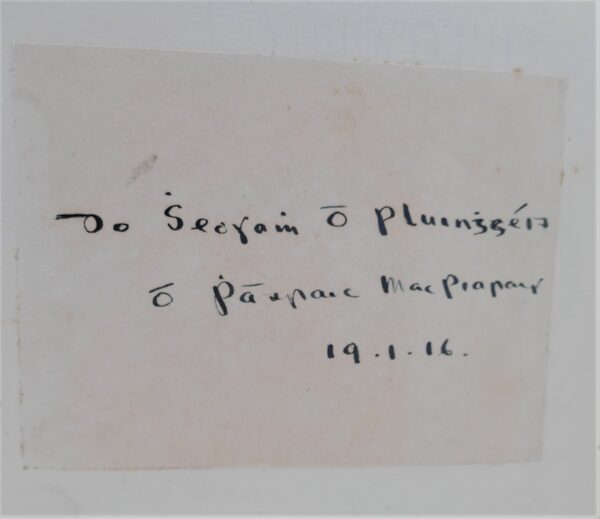 Do Ṡeosaim Ó Pluinggéid
Ó Ṗádraic Mac Piarais
19.1.16.